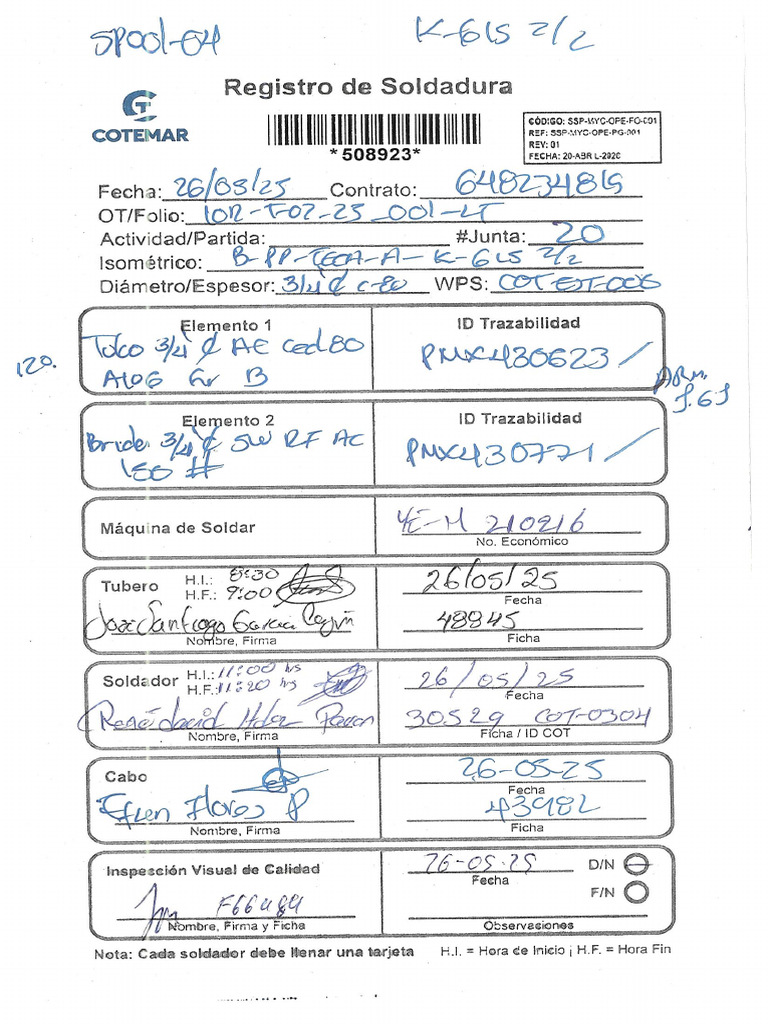 SPOOL-04
K-615 2/2
Registro de Soldadura
COTEMAR
*508923*
CÓDIGO: SSP-MYC-OPE-FO-001
REF: SSP-MYC-OPE-PG-001
REV: 01
FECHA: 20-ABRIL-2020
Fecha: 26/05/25 Contrato: 648234815
OT/Folio: 102-T-02-25_001-LT
Actividad/Partida: #Junta: 20
Isométrico: B-PP-CECA-A-K-615 2/2
Diámetro/Espesor: 3/4 ¢ c-80 WPS: COT EST-006
Elemento 1
ID Trazabilidad
120.
Toco 3/4 ¢ AC Ced 80
A106 Gr B
PMX430623 /
ARM.
Elemento 2
ID Trazabilidad
Brida 3/4 ¢ SW RF AC
150 #
PMX430771 /
Máquina de Soldar
YE-M 210216
No. Económico
Tubero H.I.: 8:30
H.F.: 9:00
26/05/25
Fecha
Jose Santiago Garcia
48845
Nombre, Firma
Ficha
Soldador H.I.: 11:00 hrs
H.F.: 11:20 hrs
26/05/25
Fecha
René david Hdez Pavon
30529 COT-0304
Nombre, Firma
Ficha / ID COT
Cabo
26-05-25
Fecha
Efren Flores P
43982
Nombre, Firma
Ficha
Inspección Visual de Calidad
26-05-25
Fecha
D/N
F/N
F66484
Nombre, Firma y Ficha
Observaciones
Nota: Cada soldador debe llenar una tarjeta H.I. = Hora de Inicio ; H.F. = Hora Fin